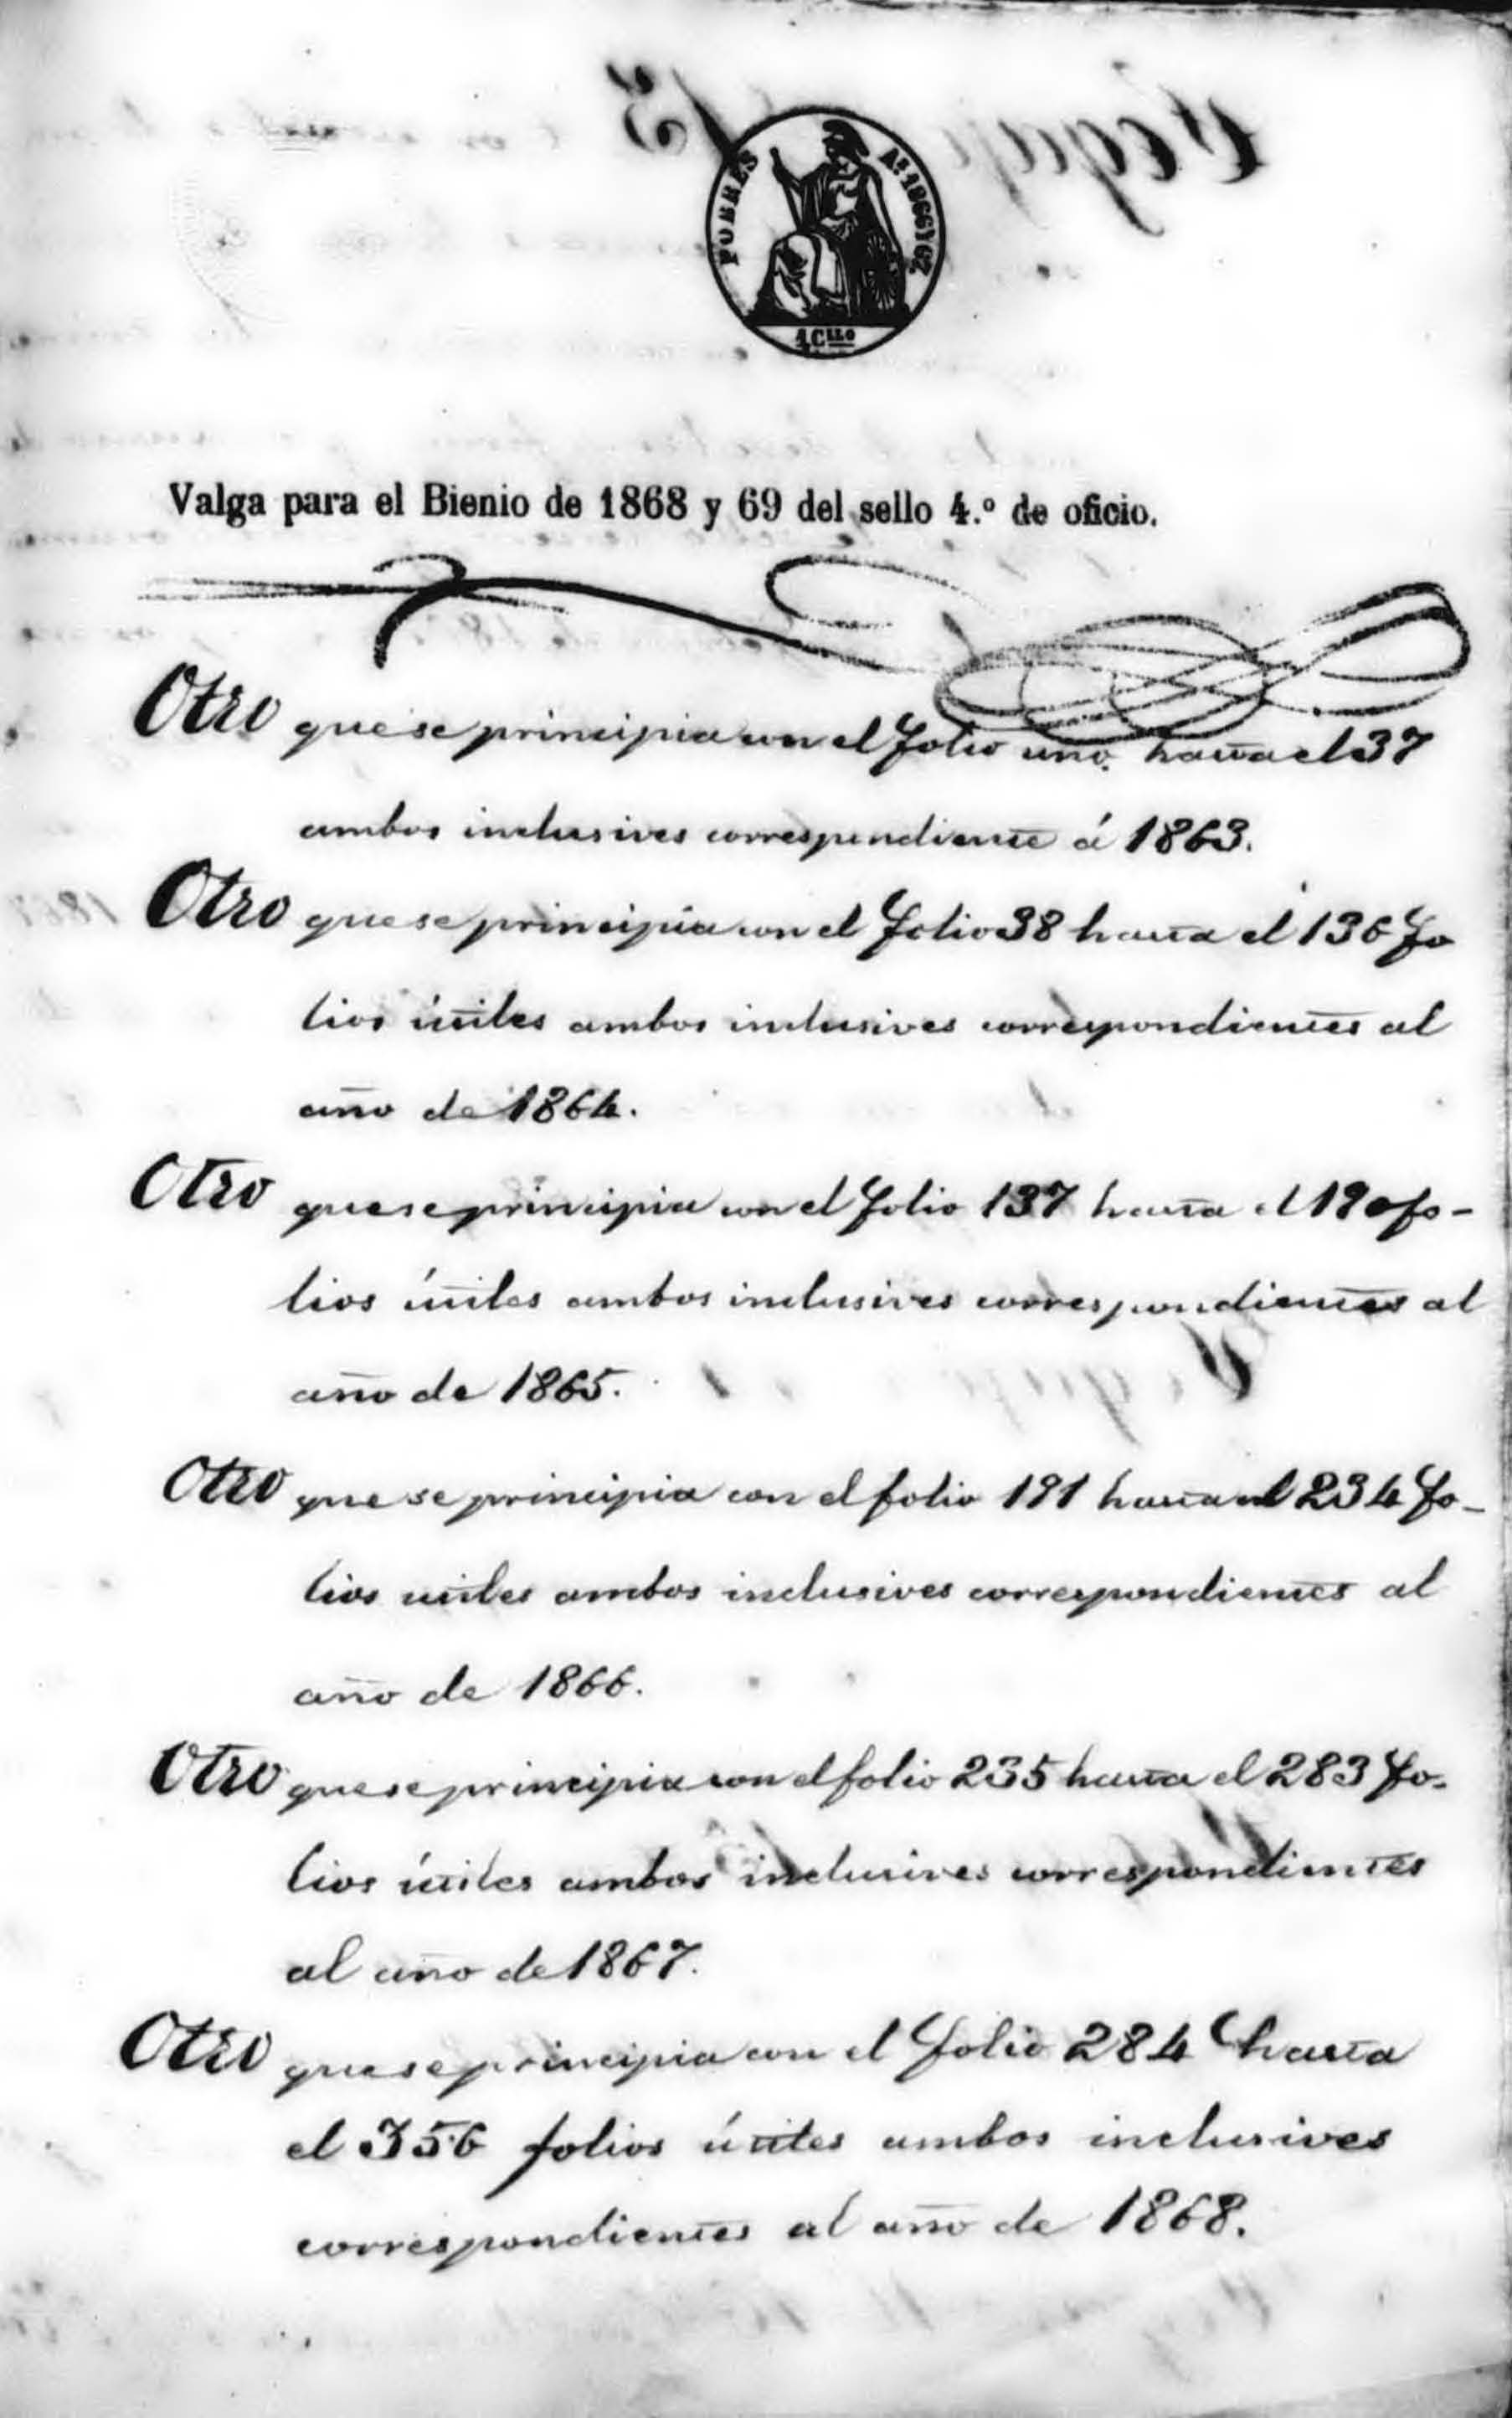 POBRES Aˢ. 1866 Y 67
1 Cˡˡᵒ
Valga para el Bienio de 1868 y 69 del sello 4.º de oficio.
Otro que se principia con el folio uno hasta el 37
ambos inclusives correspondiente á 1863.
Otro que se principia con el folio 38 hasta el 136 fo
lios útiles ambos inclusives correspondientes al
año de 1864.
Otro que se principia con el folio 137 hasta el 190 fo-
lios útiles ambos inclusives correspondientes al
año de 1865.
Otro que se principia con el folio 191 hasta el 234 fo-
lios utiles ambos inclusives correspondientes al
año de 1866.
Otro que se principia con el folio 235 hasta el 283 fo-
lios útiles ambos inclusives correspondientes
al año de 1867.
Otro que se principia con el folio 284 hasta
el 356 folios útiles ambos inclusives
correspondientes al año de 1868.